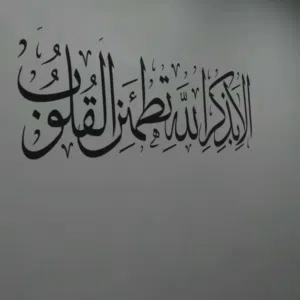 الا بذكر الله تطمئن القلوب